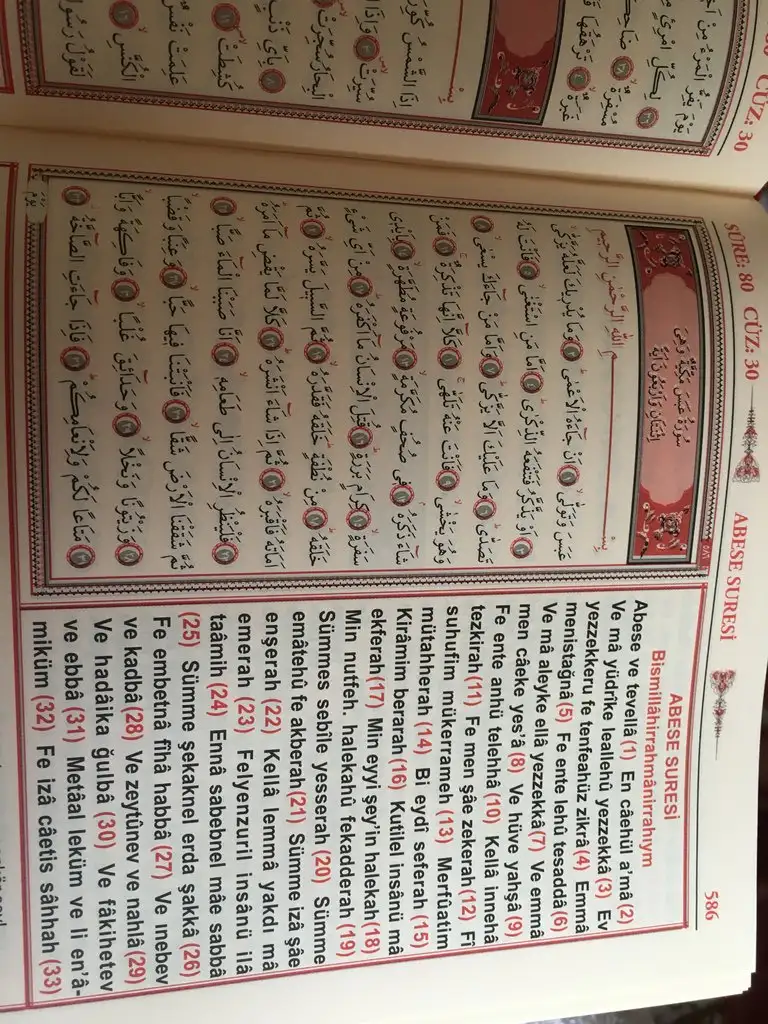 SÛRE: 80 CÜZ: 30
ABESE SURESİ
586
سُورَةُ عَبَسَ مَكِّيَّةٌ وَهِيَ
اِثْنَتَانِ وَاَرْبَعُونَ اٰيَةً
بِسْمِ اللّٰهِ الرَّحْمٰنِ الرَّحِيمِ
عَبَسَ وَتَوَلّٰىۙ ١ اَنْ جَٓاءَهُ الْاَعْمٰىۜ ٢ وَمَا يُدْرِيكَ لَعَلَّهُ يَزَّكّٰىۙ
٣ اَوْ يَذَّكَّرُ فَتَنْفَعَهُ الذِّكْرٰىۜ ٤ اَمَّا مَنِ اسْتَغْنٰىۙ ٥ فَاَنْتَ لَهُ
تَصَدّٰىۜ ٦ وَمَا عَلَيْكَ اَلَّا يَزَّكّٰىۜ ٧ وَاَمَّا مَنْ جَٓاءَكَ يَسْعٰىۙ ٨
وَهُوَ يَخْشٰىۙ ٩ فَاَنْتَ عَنْهُ تَلَهّٰىۚ ١٠ كَلَّٓا اِنَّهَا تَذْكِرَةٌۚ ١١ فَمَنْ
شَٓاءَ ذَكَرَهُۢ ١٢ فِي صُحُفٍ مُكَرَّمَةٍۙ ١٣ مَرْفُوعَةٍ مُطَهَّرَةٍۙ ١٤ بِاَيْدِي
سَفَرَةٍۙ ١٥ كِرَامٍ بَرَرَةٍۜ ١٦ قُتِلَ الْاِنْسَانُ مَٓا اَكْفَرَهُۜ ١٧ مِنْ اَيِّ شَيْءٍ
خَلَقَهُۜ ١٨ مِنْ نُطْفَةٍۜ خَلَقَهُ فَقَدَّرَهُۙ ١٩ ثُمَّ السَّبِيلَ يَسَّرَهُۙ ٢٠ ثُمَّ
اَمَاتَهُ فَاَقْبَرَهُۙ ٢١ ثُمَّ اِذَا شَٓاءَ اَنْشَرَهُۜ ٢٢ كَلَّا لَمَّا يَقْضِ مَٓا اَمَرَهُۜ
٢٣ فَلْيَنْظُرِ الْاِنْسَانُ اِلٰى طَعَامِهِۙ ٢٤ اَنَّا صَبَبْنَا الْمَٓاءَ صَبًّاۙ ٢٥
ثُمَّ شَقَقْنَا الْاَرْضَ شَقًّاۙ ٢٦ فَاَنْبَتْنَا فِيهَا حَبًّاۙ ٢٧ وَعِنَبًا وَقَضْبًاۙ
٢٨ وَزَيْتُونًا وَنَخْلًاۙ ٢٩ وَحَدَٓائِقَ غُلْبًاۙ ٣٠ وَفَاكِهَةً وَاَبًّاۙ
٣١ مَتَاعًا لَكُمْ وَلِاَنْعَامِكُمْۜ ٣٢ فَاِذَا جَٓاءَتِ الصَّٓاخَّةُۘ ٣٣
يَوْمَ
ABESE SURESİ
Bismillâhirrahmânirrahıym
Abese ve tevellâ (1) En câehül a’mâ (2)
Ve mâ yüdrîke leallehû yezzekkâ (3) Ev
yezzekkeru fe tenfeahüz zikrâ (4) Emmâ
menistağnâ (5) Fe ente lehû tesaddâ (6)
Ve mâ aleyke ellâ yezzekkâ (7) Ve emmâ
men câeke yes’â (8) Ve hüve yahşâ (9)
Fe ente anhü telehhâ (10) Kellâ innehâ
tezkirah (11) Fe men şâe zekerah (12) Fî
suhufim mükerrameh (13) Merfûatim
mütahherah (14) Bi eydî seferah (15)
Kirâmim berarah (16) Kutilel insânü mâ
ekferah (17) Min eyyi şey’in halekah (18)
Min nutfeh. halekahû fekadderah (19)
Sümmes sebîle yesserah (20) Sümme
emâtehû fe akberah (21) Sümme izâ şâe
enşerah (22) Kellâ lemmâ yakdı mâ
emerah (23) Felyenzuril insânü ilâ
taâmih (24) Ennâ sabebnel mâe sabbâ
(25) Sümme şekaknel erda şakkâ (26)
Fe embetnâ fîhâ habbâ (27) Ve ınebev
ve kadbâ (28) Ve zeytûnev ve nahlâ (29)
Ve hadâika ğulbâ (30) Ve fâkihetev
ve ebbâ (31) Metâal leküm ve li en’â-
miküm (32) Fe izâ câetis sâhhah (33)
CÜZ: 30